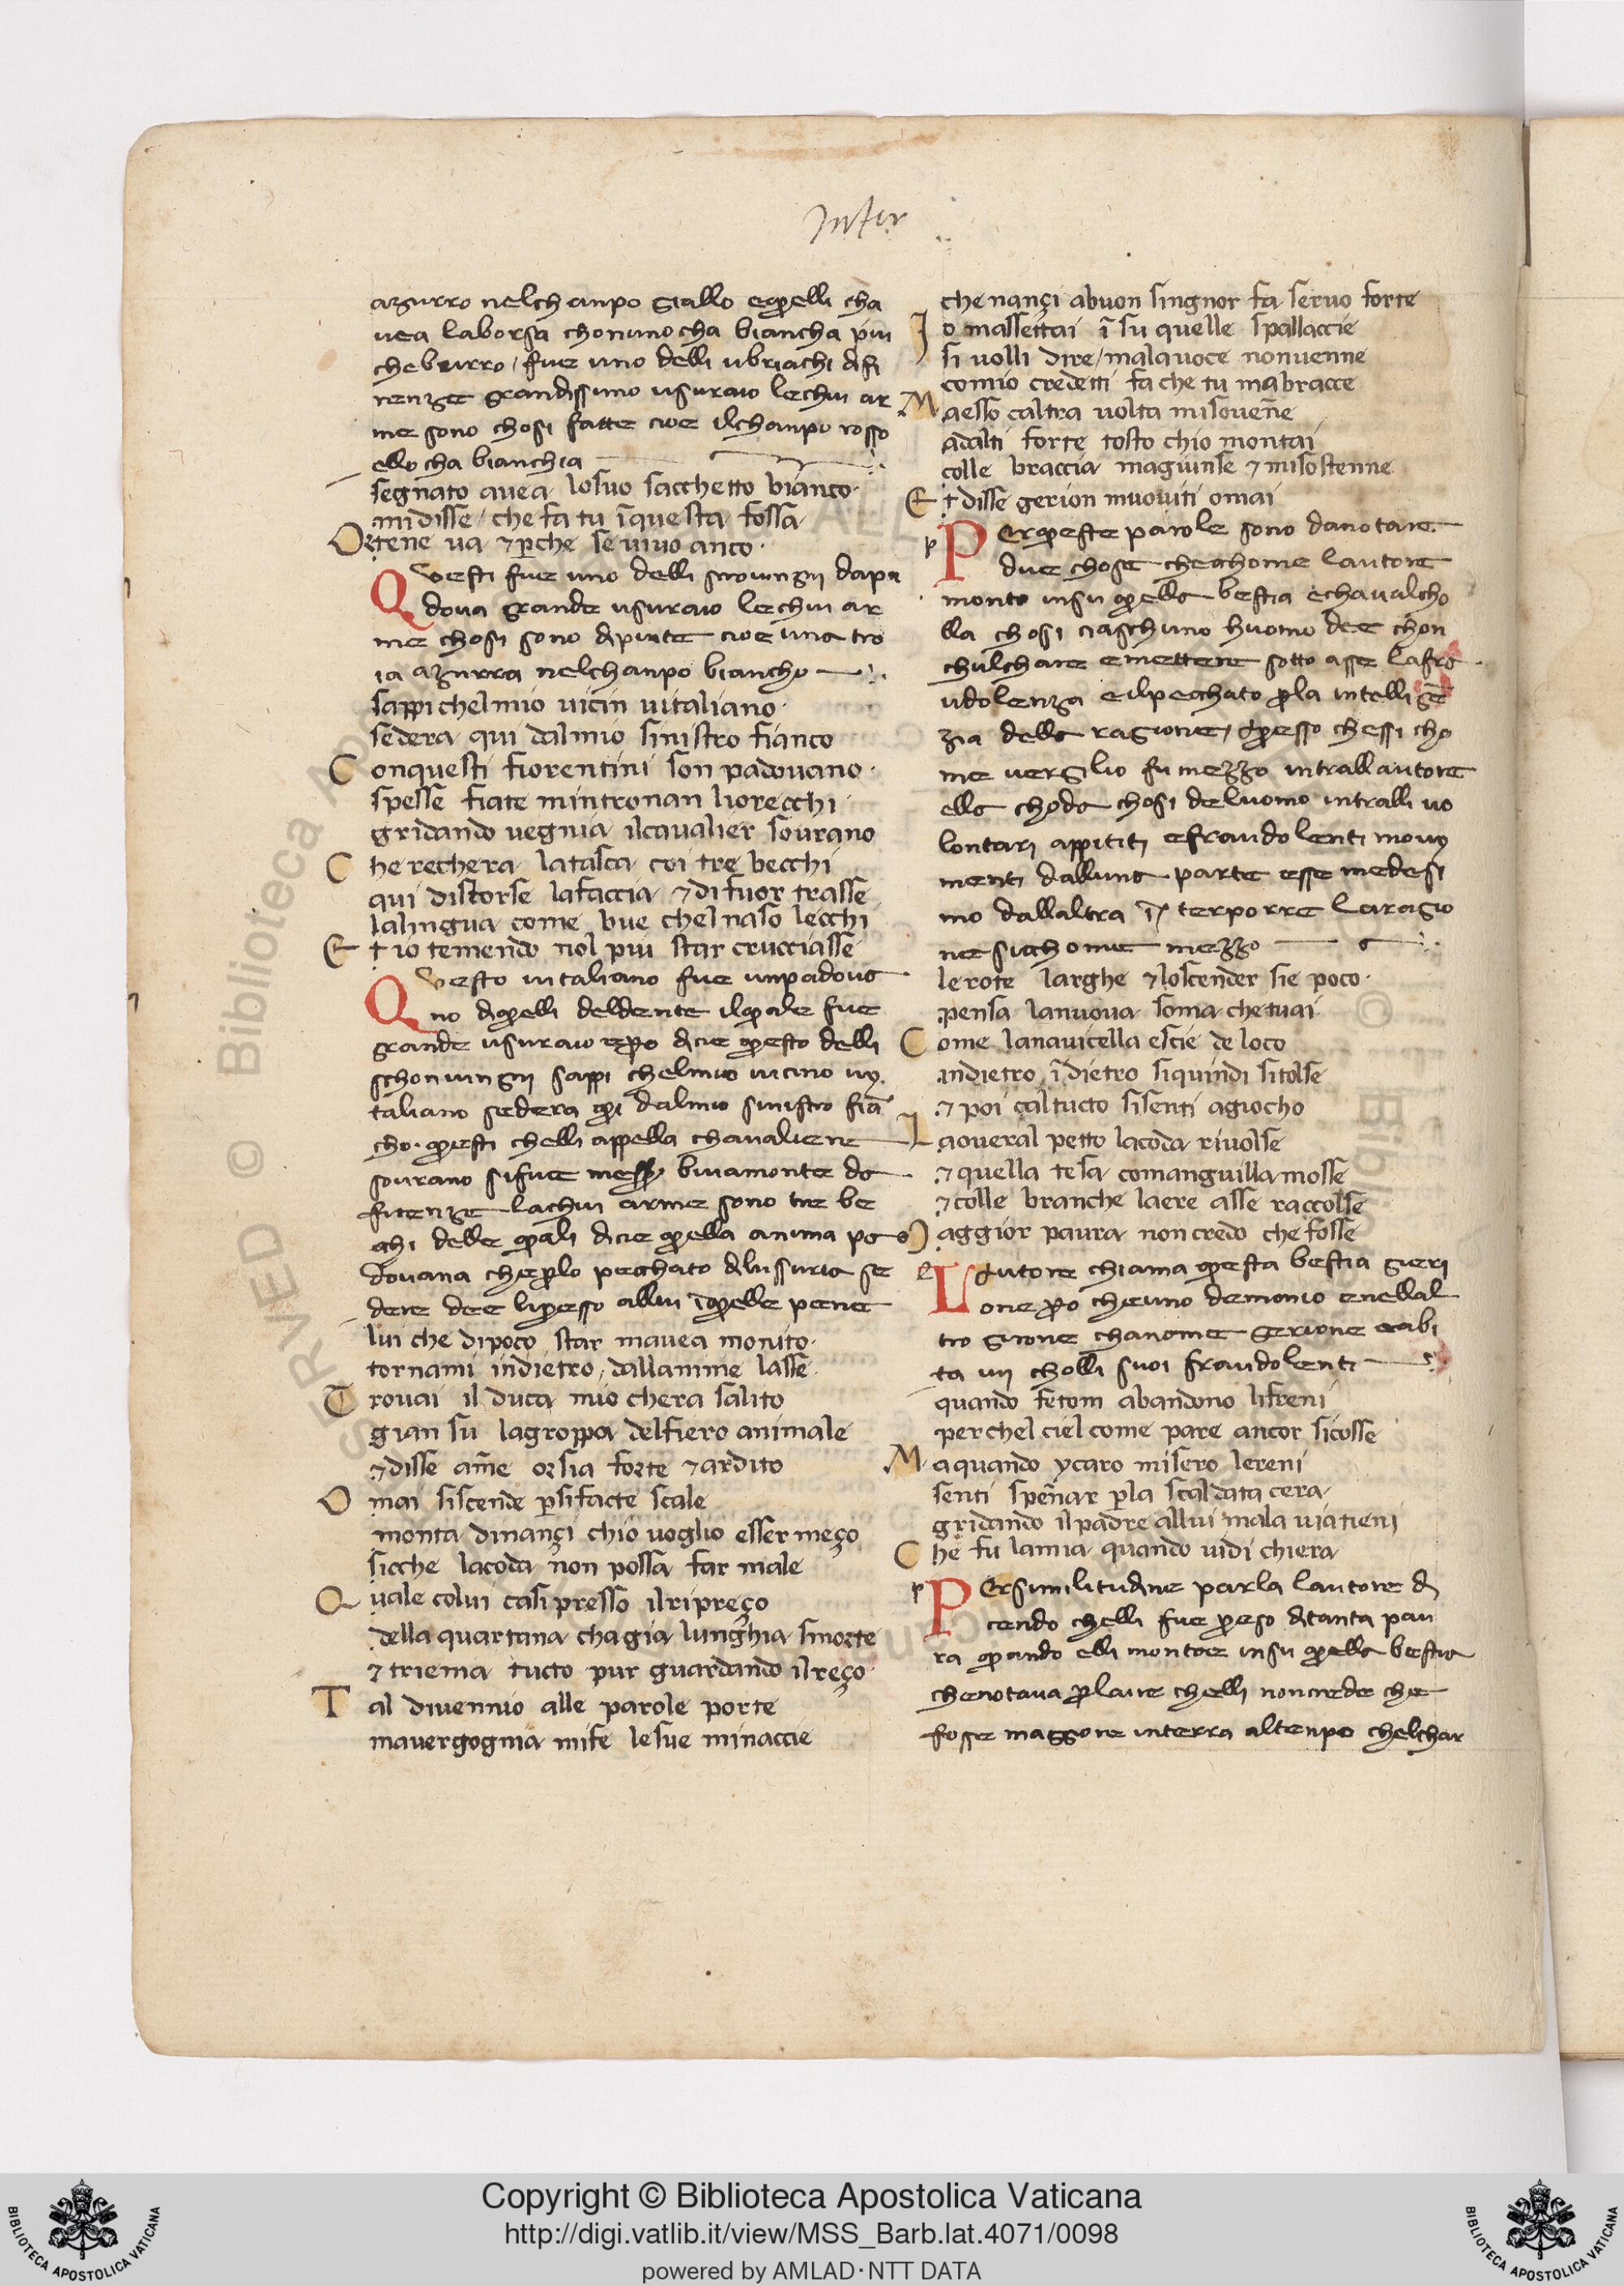 Infer
azurro nelchanpo giallo eq̃elli cha
vea laborsa chonuno cha biancha piu
che burro / fue uno delli ubriachi di fi
renze grandissimo usuraio lechui ar
me sono chosi fatte cioe ilchanpo rosso
ello cha bianchia
segnato avea losuo sacchetto bianco·
midisse / che fa tu ĩquesta fossa
Ortene va ⁊ p̱che se vivo anco·
Questi fue uno delli scrovingni dapa
dova grande usuraio lechui ar
me chosi sono dipinte cioe una tro
ia azurra nelchanpo biancho
sappi chelmio vicin vitaliano·
sedera qui dalmio sinistro fianco
Conquesti fiorentini son padovano·
spesse fiate mintronan liorecchi·
gridando vegnia ilcavalier sovrano
Che rechera latasca coi tre becchi
qui distorse lafaccia ⁊ di fuor trasse
lalingua come bue chelnaso lecchi
Et io temendo nol piu star crucciasse
Questo vitaliano fue unpadova
no diq̃elli deldente ilq̃ale fue
grande usuraio ep̱o dicie q̃esto delli
schrovingni sappi chelmio vicino vi
taliano sedera q̃i dalmio sinistro fiã
cho· q̃esti chelli appella chavaliere
sovrano sifue mess̃ buiamonte da
firenze lachui arme sono tre be
chi delle q̃ali dicie q̃ella anima pa
dovana chep̱lo pecchato dilussuria se
dere dee lip̱esso allui ĩq̃elle pene
lui che dipoco star mavea monito·
tornami indietro dallanime lasse
Trovai il duca mio chera salito
gian su lagroppa delfiero animale
⁊ disse am̃e or sia forte ⁊ ardito
Omai siscende p̱sifacte scale
monta dinançi chio voglio esser meço
sicche lacoda non possa far male
Quale colui casi presso ilripreço
della quartana chagia lunghia smorte
⁊ triema tucto pur guardando ilreço·
Tal divennio alle parole porte
mavergognia mife lesue minaccie
che nançi abuon singnor fa servo forte
Io massettai ĩ su quelle spallaccie
si volli dire / malavoce nonvenne
comio credetti fa che tu mabracce
Maesso caltra volta misoveñe
adalti forte tosto chio montai
colle braccia magiunse ⁊ misostenne
Et disse gerion muoviti omai
Perq̃este parole sono danotare
due chose chechome lautore
monto insu q̃ella bestia echavalcho
lla chosi ciaschuno huomo dee chon
chulchare emettere sotto asse lafra
udolenza eilpecchato p̱la intelligẽ
zia della ragione / dip̱esso chessi cho
me vergilio fu mezzo intrallautore
ella choda chosi deluomo intralli vo
lontari appititi efraudolenti movi
menti dalluna parte esse medesi
mo dallaltra ĩ terporre laragio
ne sicchome mezzo
le rote larghe ⁊ loscender sie poco·
pensa lanuova soma chetuai
Come lanavicella escie de loco
indietro ĩdietro siquindi sitolse
⁊ poi caltucto sisenti agiocho
Laoveral petto lacoda rivolse
⁊ quella tesa comanguilla mosse
⁊ colle branche laere asse raccolse
Maggior paura non credo che fosse
Lautore chiama q̃esta bestia gieri
one p̱o cheuno demonio enellal
tro girone chanome gerione eabi
ta ivi cholli suoi fraudolenti
quando fetom abandono lifreni
perchel ciel come pare ancor sicosse
Maquando ycaro misero lereni
senti speñar p̱la scaldata cera
gridando ilpadre allui mala via tieni
Che fu lamia quando vidi chiera
Persimilitudine parla lautore di
cendo chelli fue p̱eso ditanta pau
ra q̃ando elli montoe insu q̃ella bestia
cherotava p̱laire chelli noncrede che
fosse maggiore interra altenpo chelchar
Copyright © Biblioteca Apostolica Vaticana
http://digi.vatlib.it/view/MSS_Barb.lat.4071/0098
powered by AMLAD·NTT DATA